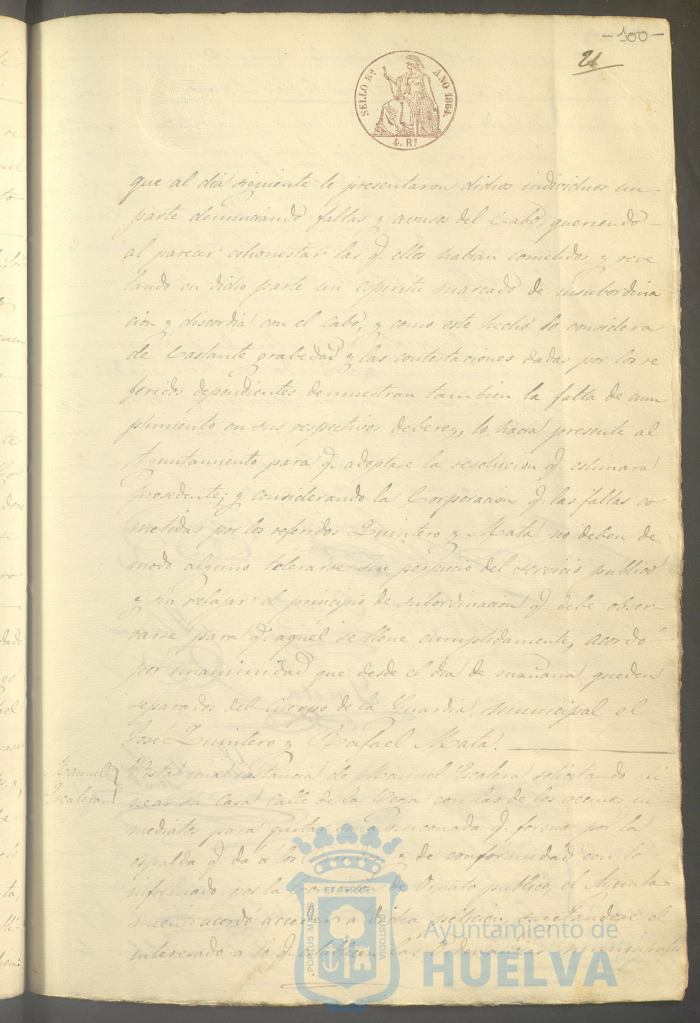 -100-
21
SELLO 8º AÑO 1864.
4. Rˢ
que al dia siguiente le presentaron dichos individuos un
parte denunciando faltas y abusos del Cabo, queriendo
al parecer cohonestar las q. ellos habian cometidos y reve
lando en dicho parte un espiritu marcado de insubordina
cion y discordia con el Cabo, y como este hecho lo considera
de bastante grabedad y las contestaciones dadas por los re
feridos dependientes demuestran tambien la falta de cum
plimiento en sus respectivos deberes, lo hacia presente al
Ayuntamiento para q. adoptase la resolucion q. estimara
prosedente; y considerando la Corporacion q. las faltas co
metidas por los referidos Quintero y Mata no deben de
modo alguno tolerarse sin perjuicio del servicio publico
y sin relajar el principio de subordinacion q. debe obser-
varse para q. aquel se llene cumplidamente, acordó
por unanimidad que desde el dia de mañana queden
separados del cuerpo de la Guardia municipal el
José Quintero y Rafael Mata.
Manuel
Escalera
Vista una instancia de Manuel Escalera solicitando ali
near su casa calle de la Vega con las de los vecinos in
mediatos para quitar una rinconada q. forma por la
espalda q. da a los y de conformidad con lo
informado por la comision de Ornato publico, el Ayunta
miento acordó acceder a dicha peticion, sujetandose el
interesado a lo q. establecen las Ordenanzas municipales
PORTUS MARIS ET TERRAE CUSTODIA
Ayuntamiento de
HUELVA